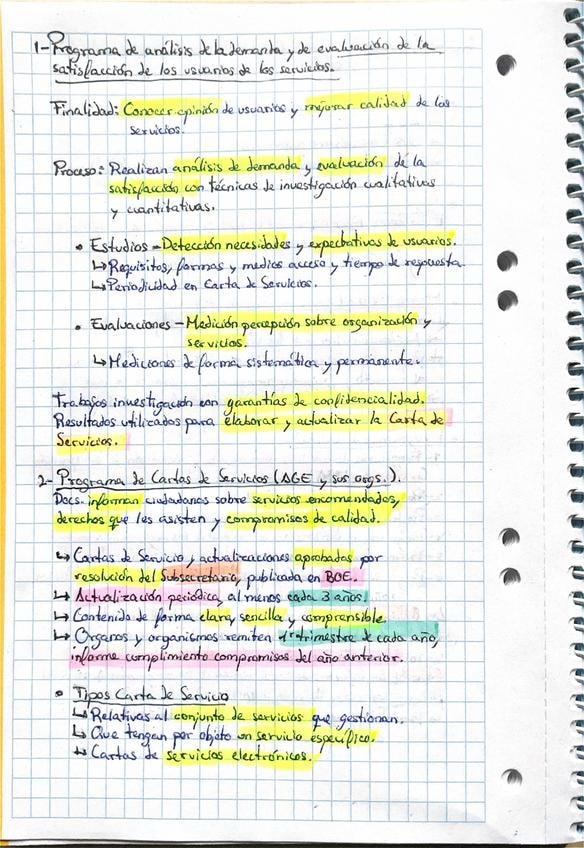 1- Programa de análisis de la demanda y de evaluación de la
satisfacción de los usuarios de los servicios.
Finalidad: Conocer opinión de usuarios y mejorar calidad de los
servicios.
Proceso: Realizan análisis de demanda y evaluación de la
satisfacción con técnicas de investigación cualitativas
y cuantitativas.
• Estudios - Detección necesidades y expectativas de usuarios.
↳ Requisitos, formas y medios acceso y tiempo de respuesta
↳ Periodicidad en Carta de Servicios.
• Evaluaciones - Medición percepción sobre organización y
servicios.
↳ Mediciones de forma sistemática y permanente.
Trabajos investigación con garantías de confidencialidad.
Resultados utilizados para elaborar y actualizar la Carta de
Servicios.
2- Programa de Cartas de Servicios (AGE y sus orgs.).
Docs. informan ciudadanos sobre servicios encomendados,
derechos que les asisten y compromisos de calidad.
↳ Cartas de Servicio y actualizaciones aprobadas por
resolución del Subsecretario, publicada en BOE.
↳ Actualización periódica, al menos cada 3 años.
↳ Contenido de forma clara, sencilla y comprensible.
↳ Organos y organismos remiten 1er trimestre de cada año,
informe cumplimiento compromisos del año anterior.
• Tipos Carta de Servicio
↳ Relativas al conjunto de servicios que gestionan.
↳ Que tengan por objeto un servicio específico.
↳ Cartas de servicios electrónicos.